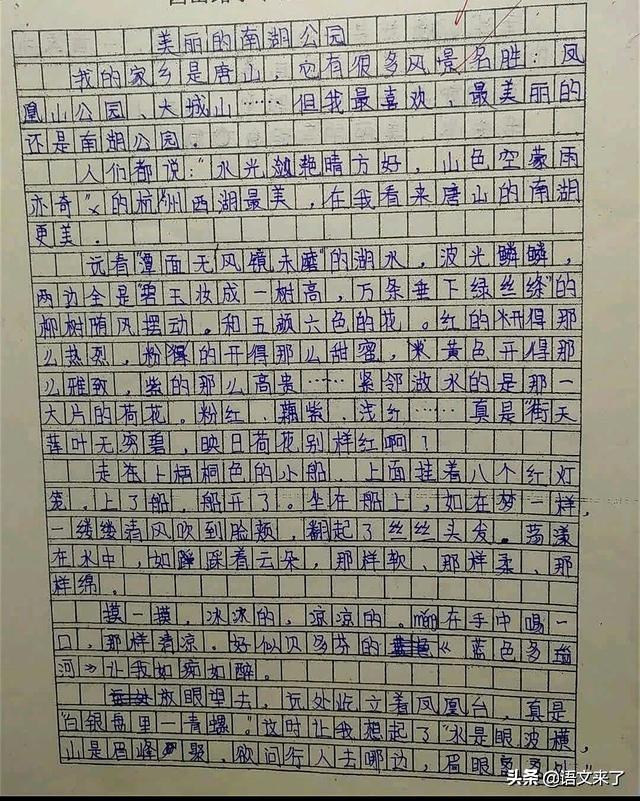 美丽的南湖公园
我的家乡是唐山，它有很多风景名胜：凤
凰山公园、大城山……但我最喜欢、最美丽的
还是南湖公园.
人们都说："水光潋滟晴方好，山色空蒙雨
亦奇"的杭州西湖最美，在我看来唐山的南湖
更美.
远看"潭面无风镜未磨"的湖水，波光鳞鳞，
两边全是"碧玉妆成一树高，万条垂下绿丝绦"的
柳树随风摆动。和五颜六色的花。红的开得那
么热烈，粉的开得那么甜密，黄色开得那
么雅致，紫的那么高贵……紧邻湖水的是那一
大片的荷花。粉红、藕紫、浅红……真是"街天
莲叶无穷碧，映日荷花别样红啊！
走在上梧桐色的小船，上面挂着八个红灯
笼.上了船，船开了。坐在船上，如在梦一样，
一缕缕清风吹到脸颊，翻起了丝丝头发。荡漾
在水中，如踩着云朵，那样软、那样柔、那
样绵。
摸一摸，冰冰的，凉凉的。měng在手中喝一
口，那样清凉。好似贝多芬的《蓝色多瑙
河》让我如痴如醉。
放眼望去，远处屹立着凤凰台，真是
"白银盘里一青螺."这时让我想起了"水是眼波横，
山是眉峰聚，欲问行人去哪边，眉眼盈盈处"
头条 @语文来了